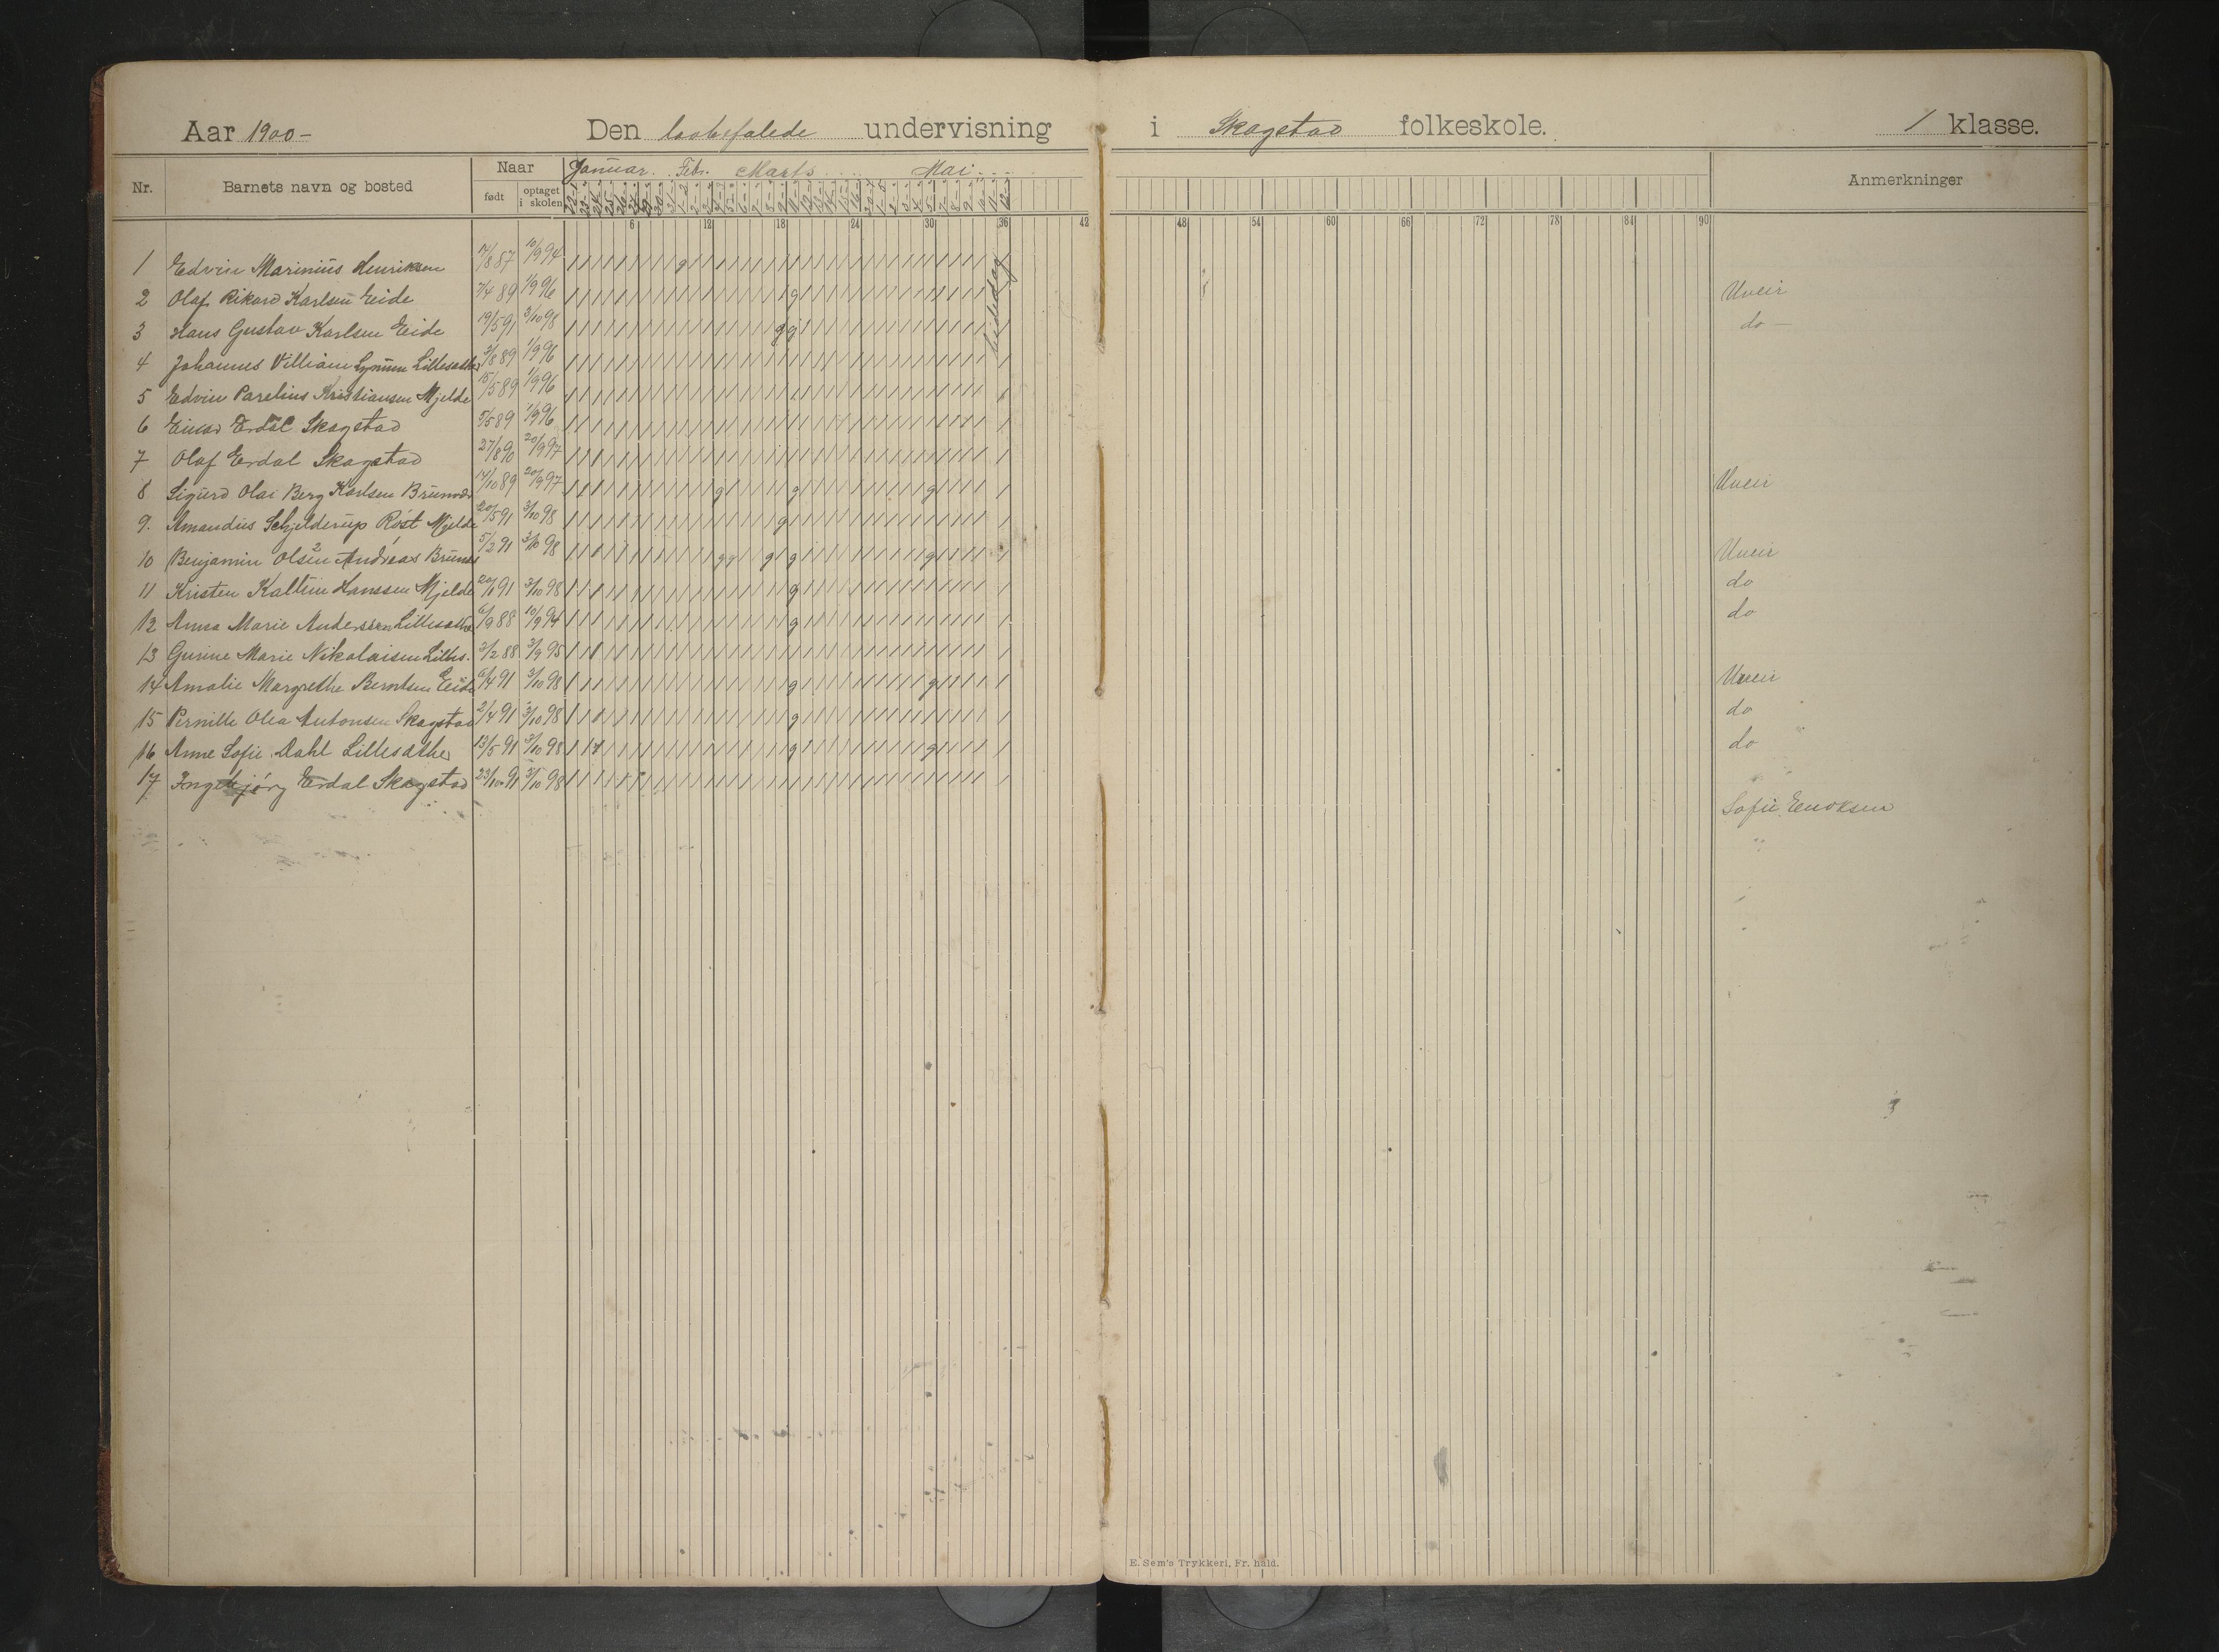 Aar 1900- Den lovbefalede undervisning i Skagstad folkeskole. 1 klasse.
Nr. Barnets navn og bosted Naar Januar. Febr. Marts Mai Anmerkninger
født optaget i skolen
6 12 18 24 30 36 42 48 54 60 66 72 78 84 90
1 Edvin Marinius Henriksen 14/8 87 10/9 94
2 Olaf Rikard Karlsen Eide 7/4 89 1/9 96 Uveir
3 Hans Gustav Karlsen Eide 19/5 91 3/10 98 do -
4 Johannes Villiam Lynum Lillesæther 3/8 89 1/9 96
5 Edvin Parelius Kristiansen Mjelde 15/5 89 1/9 96
6 Einar Erdal Skagstad 5/5 89 1/9 96
7 Olaf Erdal Skagstad 27/8 90 20/9 97
8 Sigurd Olai Berg Karlsen 14/10 89 20/9 97 Uveir
9. Amandus Schjelderup Röst Mjelde 20/5 91 3/10 98
10 Benjamin Olsen Andreas 5/2 91 3/10 98 Uveir
11 Kristen Hanssen Mjelde 20/1 91 3/10 98 do
12 Anna Marie Anderssen Lillesæther 6/9 88 10/9 94 do
13 Gurine Marie Nikolaisen Lilles. 3/2 88 3/9 95
14 Amalie Margrethe Berntsen Eide 6/4 91 3/10 98 Uveir
15 Pernille Olea Antonsen Skagstad 2/4 91 3/10 98 do
16 Anne Sofie Dahl Lillesæther 13/5 91 3/10 98 do
17 Ingebjörg Erdal Skagstad 23/10 91 3/10 98
Sofie Enoksen
E. Sem's Trykkeri, Fr.hald.